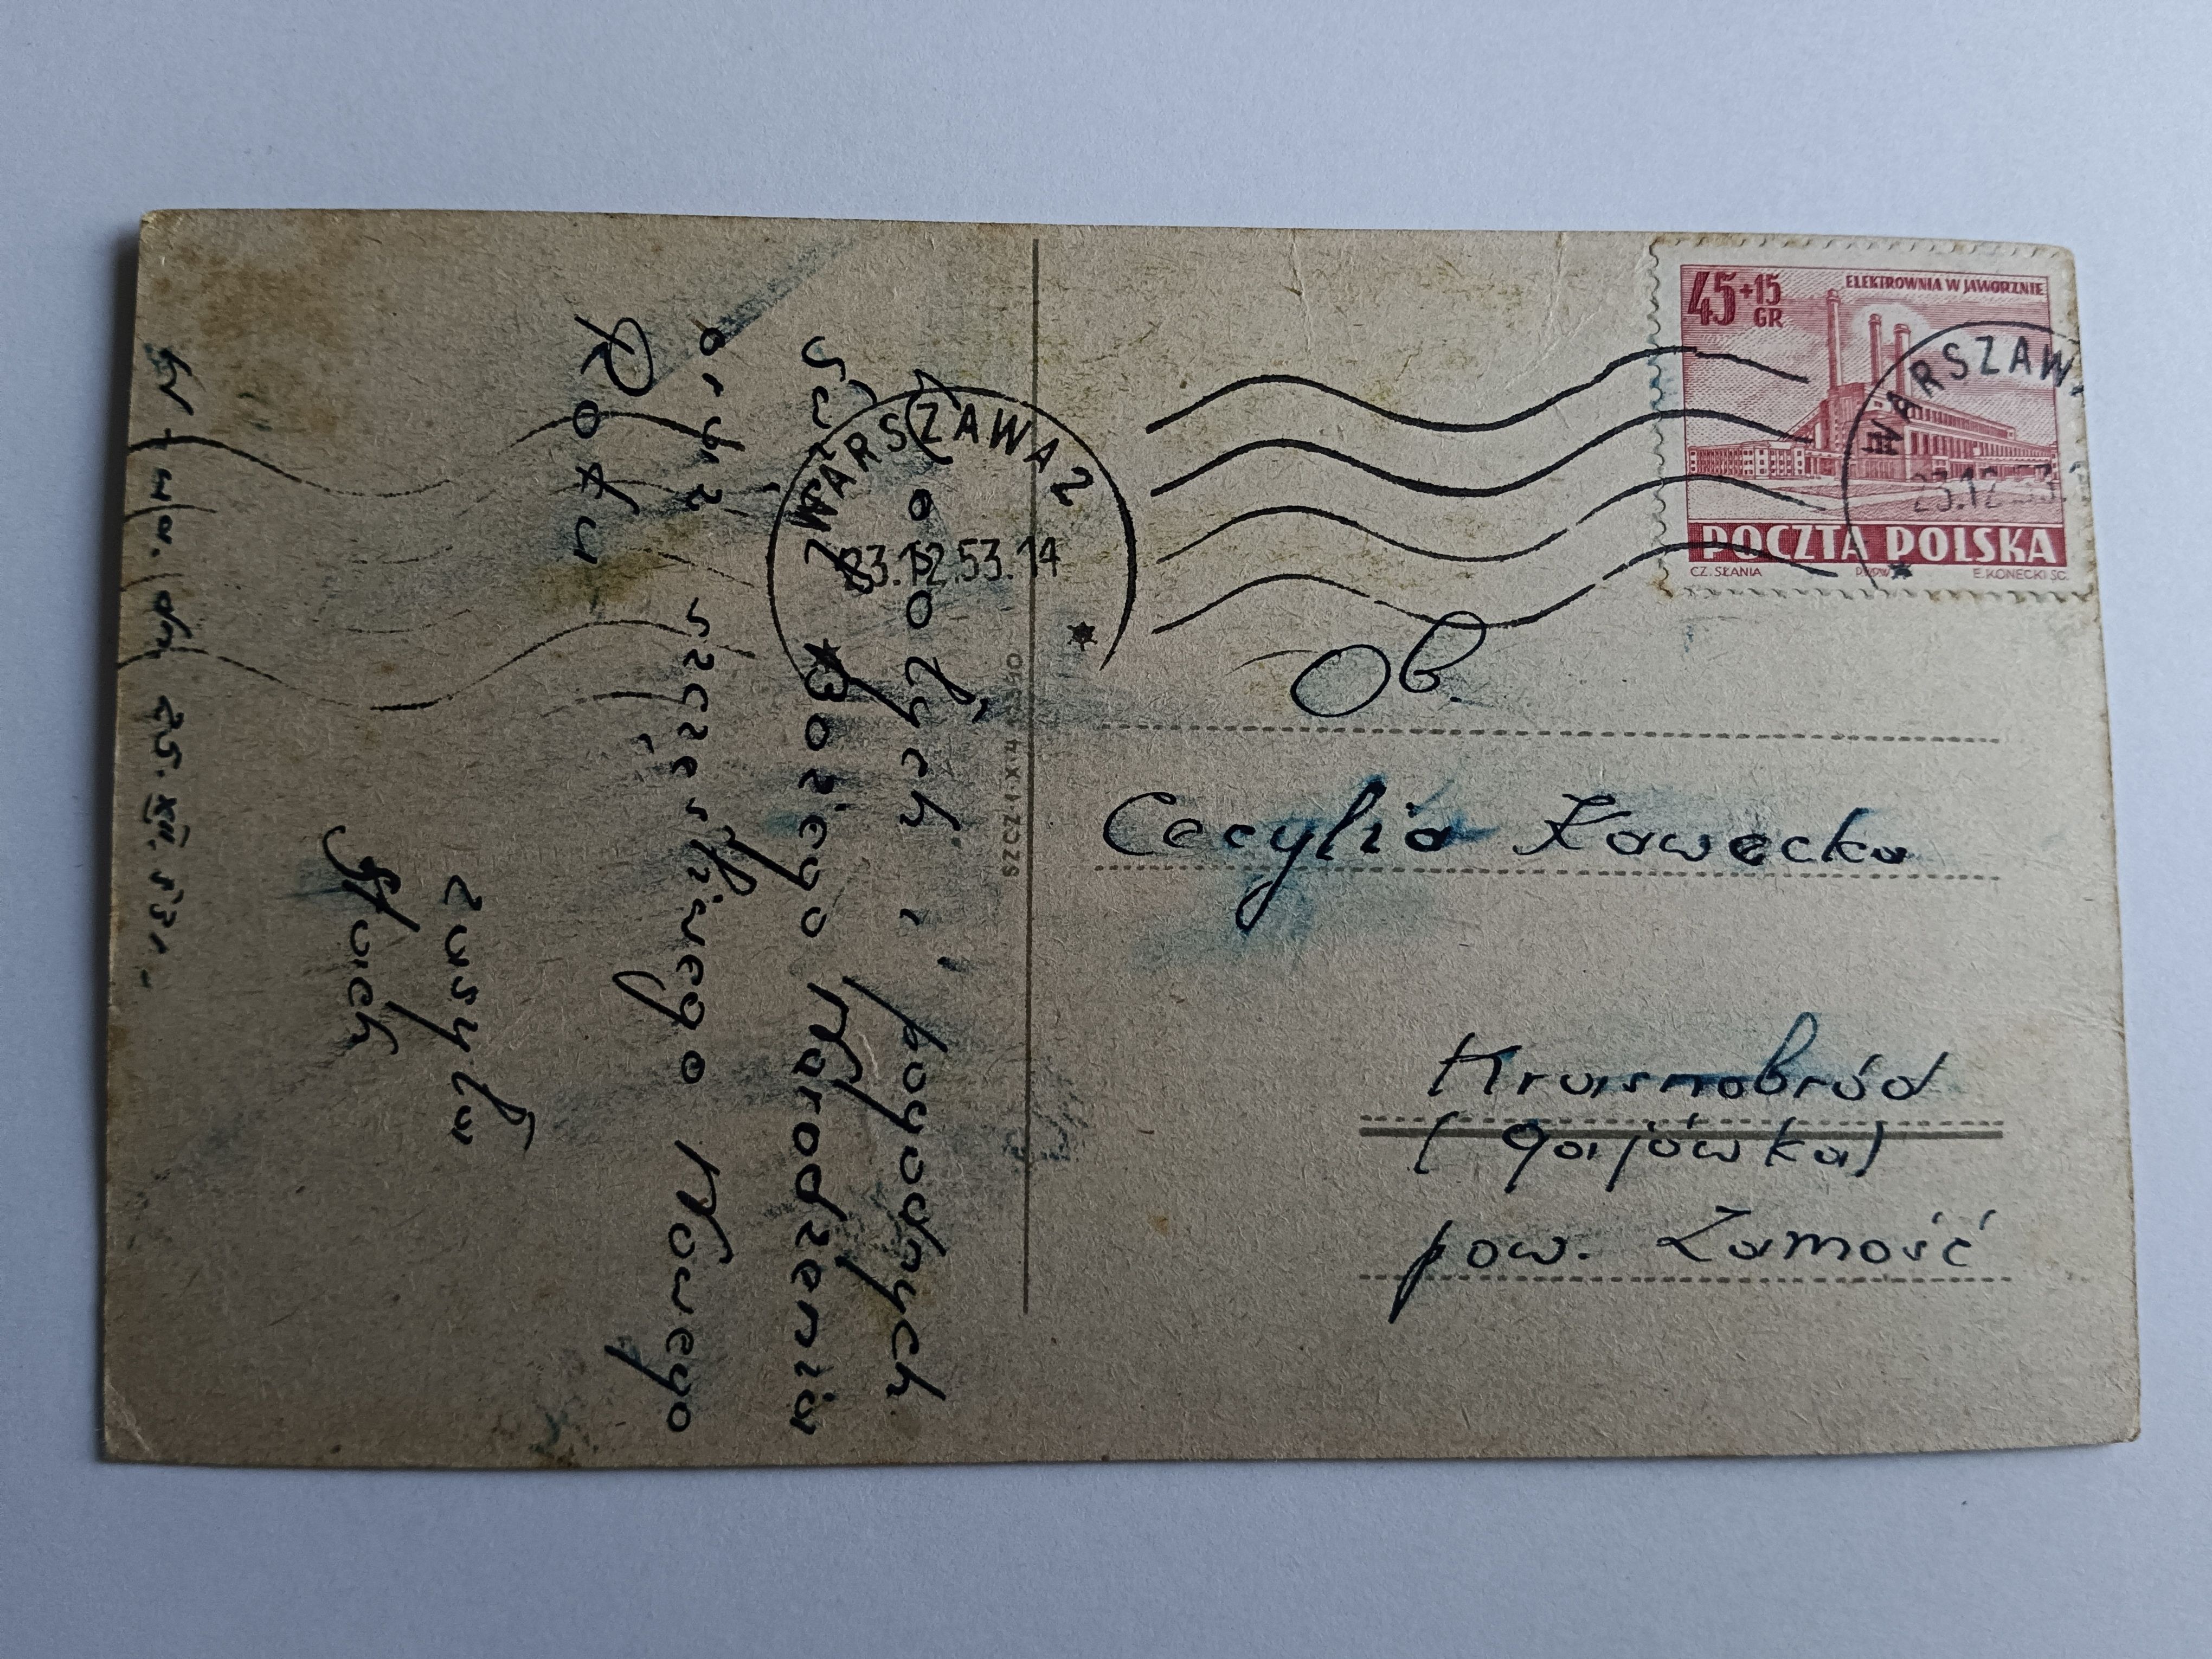 45+15
GR
ELEKTROWNIA W JAWORZNIE
POCZTA POLSKA
CZ. SŁANIA
E. KONECKI SC.
WARSZAWA
23.12.53.
WARSZAWA 2
23.12.53.14
Ob.
Cecylia Kawecka
Krasnobród
(gajówka)
pow. Zamość
SZCZ-1-X-4
Wesołych i pogodnych
Świąt Bożego Narodzenia
oraz szczęśliwego Nowego
Roku
zasyła
Stach
W-wa. dn 25.XII.53r.-